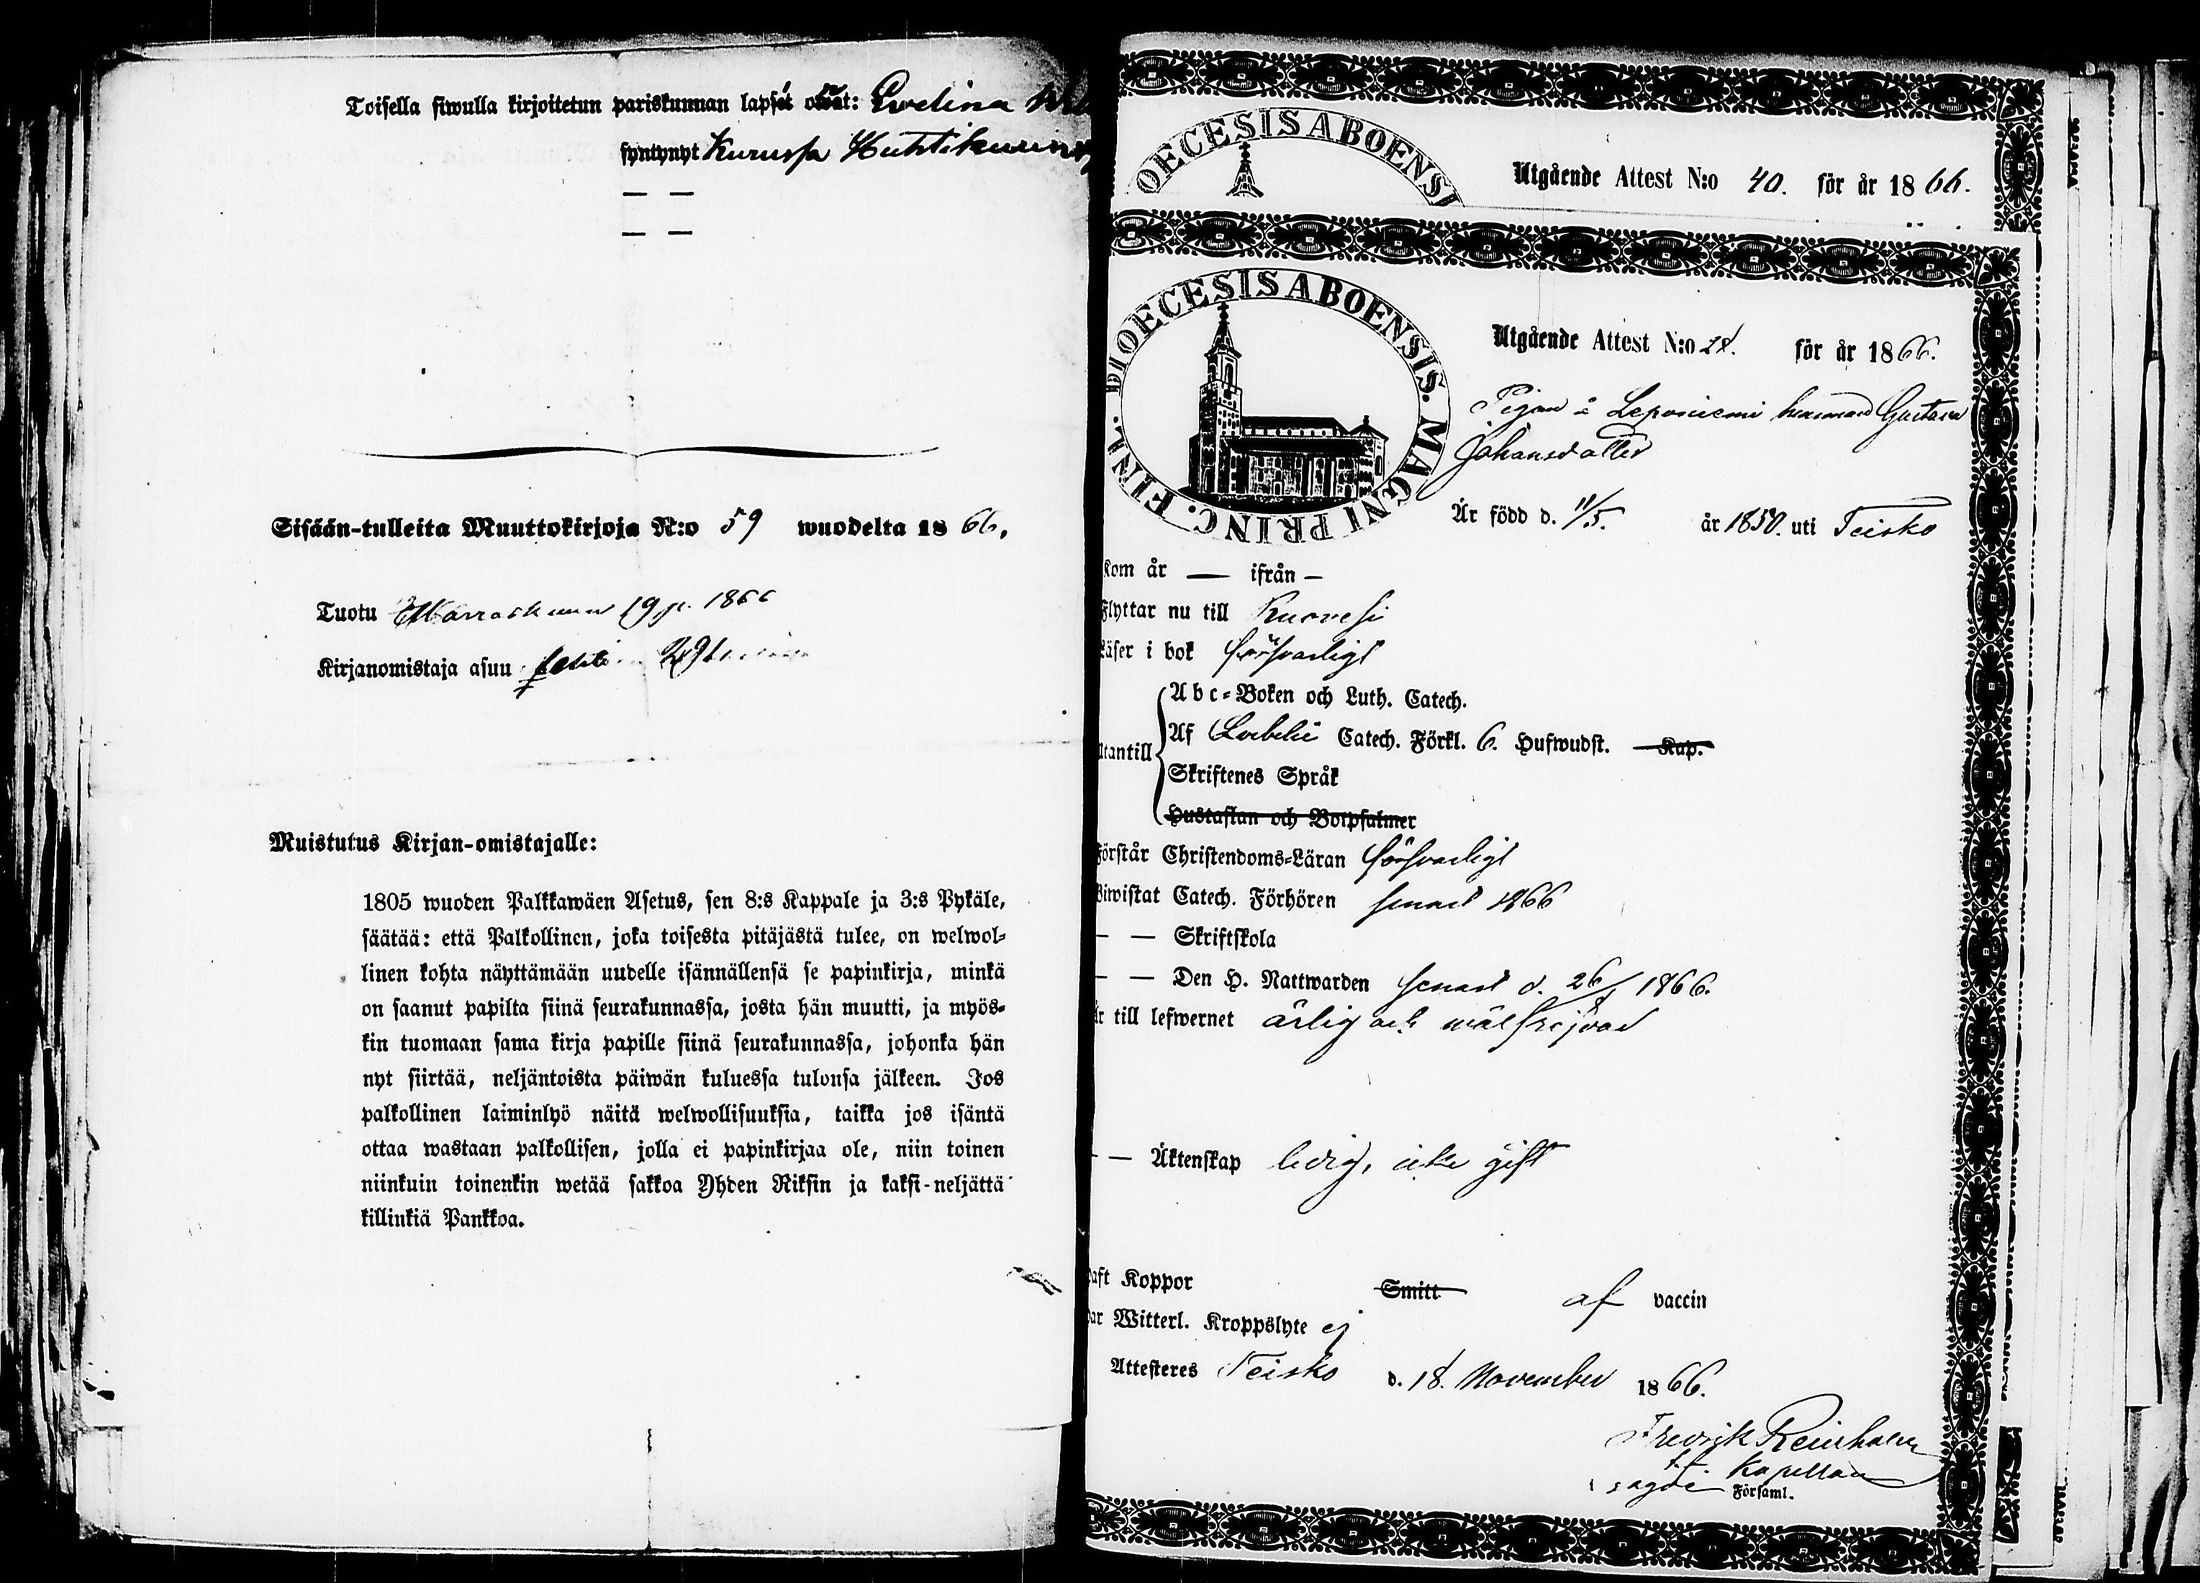 Toisella siwulla kirjoitetun pariskunnan lapset owat: Ewelina
syntynyt Kurussa Huhtikuun
— —
— —
Sisään-tulleita Muuttokirjoja N:o 59 wuodelta 1866.
Tuotu Marraskuun 19 p. 1866
Kirjanomistaja asuu
Muistutus Kirjan-omistajalle:
1805 wuoden Palkkawäen Asetus, sen 8:s Kappale ja 3:s Pykäle,
säätää: että Palkollinen, joka toisesta pitäjästä tulee, on welwol-
linen kohta näyttämään uudelle isännällensä se papinkirja, minkä
on saanut papilta siinä seurakunnassa, josta hän muutti, ja myös-
kin tuomaan sama kirja papille siinä seurakunnassa, johonka hän
nyt siirtää, neljäntoista päiwän kuluessa tulonsa jälkeen. Jos
palkollinen laiminlyö näitä welwollisuuksia, taikka jos isäntä
ottaa wastaan palkollisen, jolla ei papinkirjaa ole, niin toinen
niinkuin toinenkin wetää sakkoa Yhden Riksin ja kaksi-neljättä
killinkiä Pankkoa.
OECESIS ABOENSI
Utgående Attest N:o 40. för år 1866.
DIOECESIS ABOENSIS. MAGNI PRINC. FINL.
Utgående Attest N:o 28. för år 1866.
Pigan å Leponiemi hemman Gustava
Johansdotter
Är född d. 11/5. år 1850. uti Teisko
Kom år — ifrån —
Flyttar nu till Ruovesi
Läser i bok försvarligt
Abc-Boken och Luth. Catech.
Utantill Af Lvebelii Catech. Förkl. 6. Hufwudst. Kap.
Skriftenes Språk
Hustaflan och Botpsalmer
Förstår Christendoms-Läran försvarligt
Biwistat Catech. Förhören senast 1866
— — Skriftskola
— — Den H. Nattwarden senast d. 26/8 1866.
Är till lefwernet ärlig och välfrejdad
— — Äktenskap ledig, icke gift
Haft Koppor Smitt af vaccin
Har Witterl. Kroppslyte ej
Attesteres Teisko d. 18. November 1866.
Fredrik Reinholm
t.f. Kapellan
i sagde Församl.